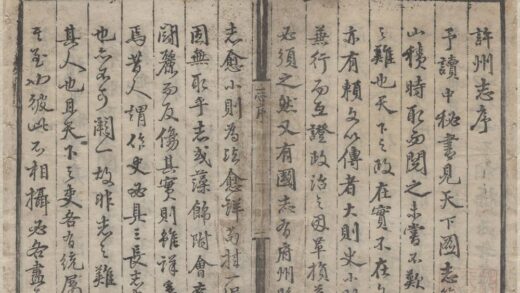 許州志序
予讀中秘書見天下圖志
山積時取而閱之未嘗不歎
之難也天下之政在實不在
亦有賴文以傳者大則史小
兼行而互證政治之因革損
必須之然又有國志有府州
志序
志愈小則為法愈詳而
固無取乎志或藻飾附會
鬭靡而反傷其實則雖詳
焉昔人謂作史必具三長志
也亦不可闕一故作志之難
其人也且天下之吏各有統属
至於彼此不相攝必各盡